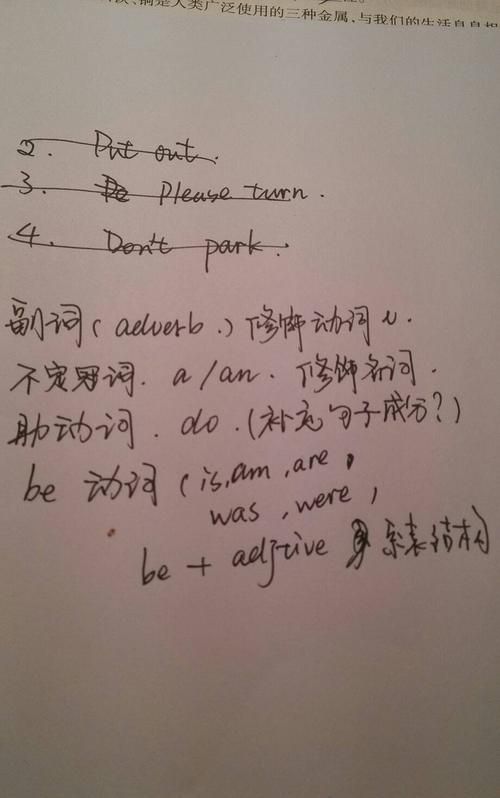 铜是人类广泛使用的三种金属,与我们的生活息息相
2. Put out.
3. Please turn.
4. Don't park.
副词(adverb.)修饰动词 v.
不定冠词. a/an. 修饰名词.
助动词. do. (补充句子成分?)
be 动词 (is, am, are,
was, were,
be + adjtive 系表结构